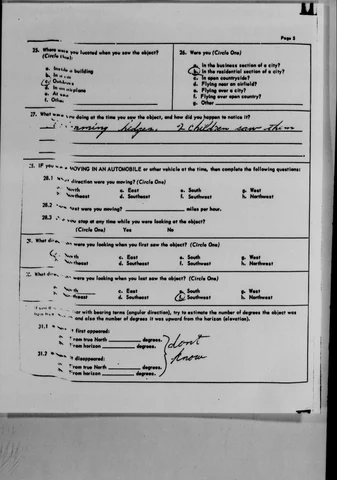 Page 3
25. Where were you located when you saw the object?
(Circle One):
a. Inside a building
b. In a car
c. Outdoors
d. In an airplane
e. At sea
f. Other
26. Were you (Circle One)
a. In the business section of a city?
b. In the residential section of a city?
c. In open countryside?
d. Flying near an airfield?
e. Flying over a city?
f. Flying over open country?
g. Other
27. What were you doing at the time you saw the object, and how did you happen to notice it?
hedges. 2 children saw them
28. IF you MOVING IN AN AUTOMOBILE or other vehicle at the time, then complete the following questions:
28.1 direction were you moving? (Circle One)
North c. East e. South g. West
Northeast d. Southeast f. Southwest h. Northwest
28.2 fast were you moving? miles per hour.
28.3 you stop at any time while you were looking at the object?
(Circle One) Yes No
What direction were you looking when you first saw the object? (Circle One)
North c. East e. South g. West
Northeast d. Southeast f. Southwest h. Northwest
What direction were you looking when you last saw the object? (Circle One)
North c. East e. South g. West
Northeast d. Southeast f. Southwest h. Northwest
with bearing terms (angular direction), try to estimate the number of degrees the object was
and also the number of degrees it was upward from the horizon (elevation).
31.1 first appeared:
From true North degrees.
From horizon degrees.
31.2 disappeared:
From true North degrees.
From horizon degrees.
don't
know